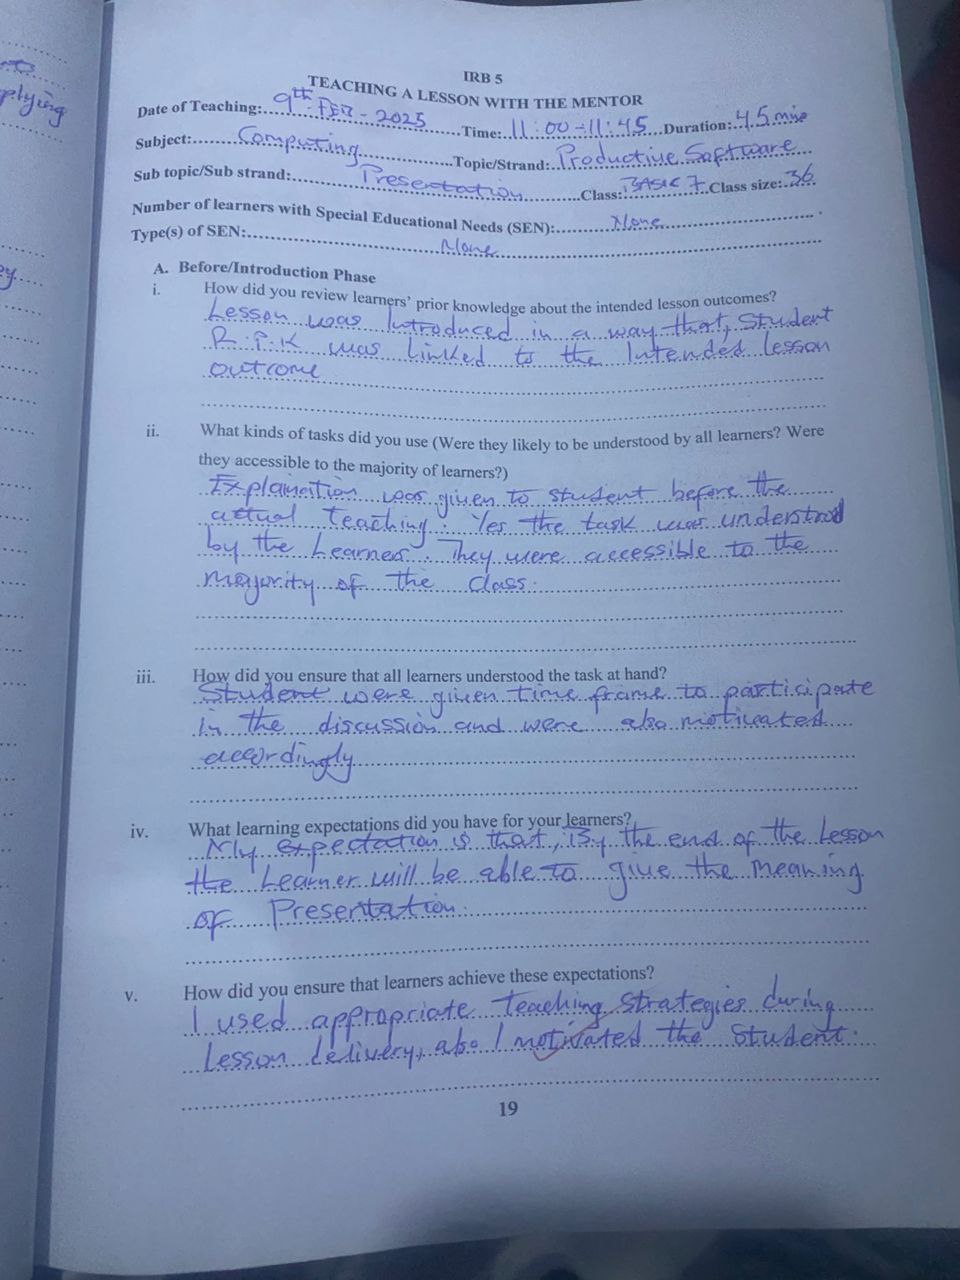 plying
ey
IRB 5
TEACHING A LESSON WITH THE MENTOR
Date of Teaching: 9th - FEB - 2025 Time: 11:00-11:45 Duration: 45 mins
Subject: Computing Topic/Strand: Productive Software
Sub topic/Sub strand: Presentation Class: BASIC 7 Class size: 36
Number of learners with Special Educational Needs (SEN): None
Type(s) of SEN: None
A. Before/Introduction Phase
i. How did you review learners' prior knowledge about the intended lesson outcomes?
Lesson was Introduced in a way that, Student
R.P.K was linked to the Intended lesson
outcome
ii. What kinds of tasks did you use (Were they likely to be understood by all learners? Were
they accessible to the majority of learners?)
Explanation was given to student before the
actual teaching. Yes the task was understood
by the Learners. They were accessible to the
majority of the class.
iii. How did you ensure that all learners understood the task at hand?
Student were given time frame to participate
in the discussion and were also motivated
accordingly
iv. What learning expectations did you have for your learners?
My expectation is that, By the end of the Lesson
the Learner will be able to give the meaning
of Presentation.
v. How did you ensure that learners achieve these expectations?
I used appropriate teaching strategies during
Lesson delivery, also I motivated the student.
19